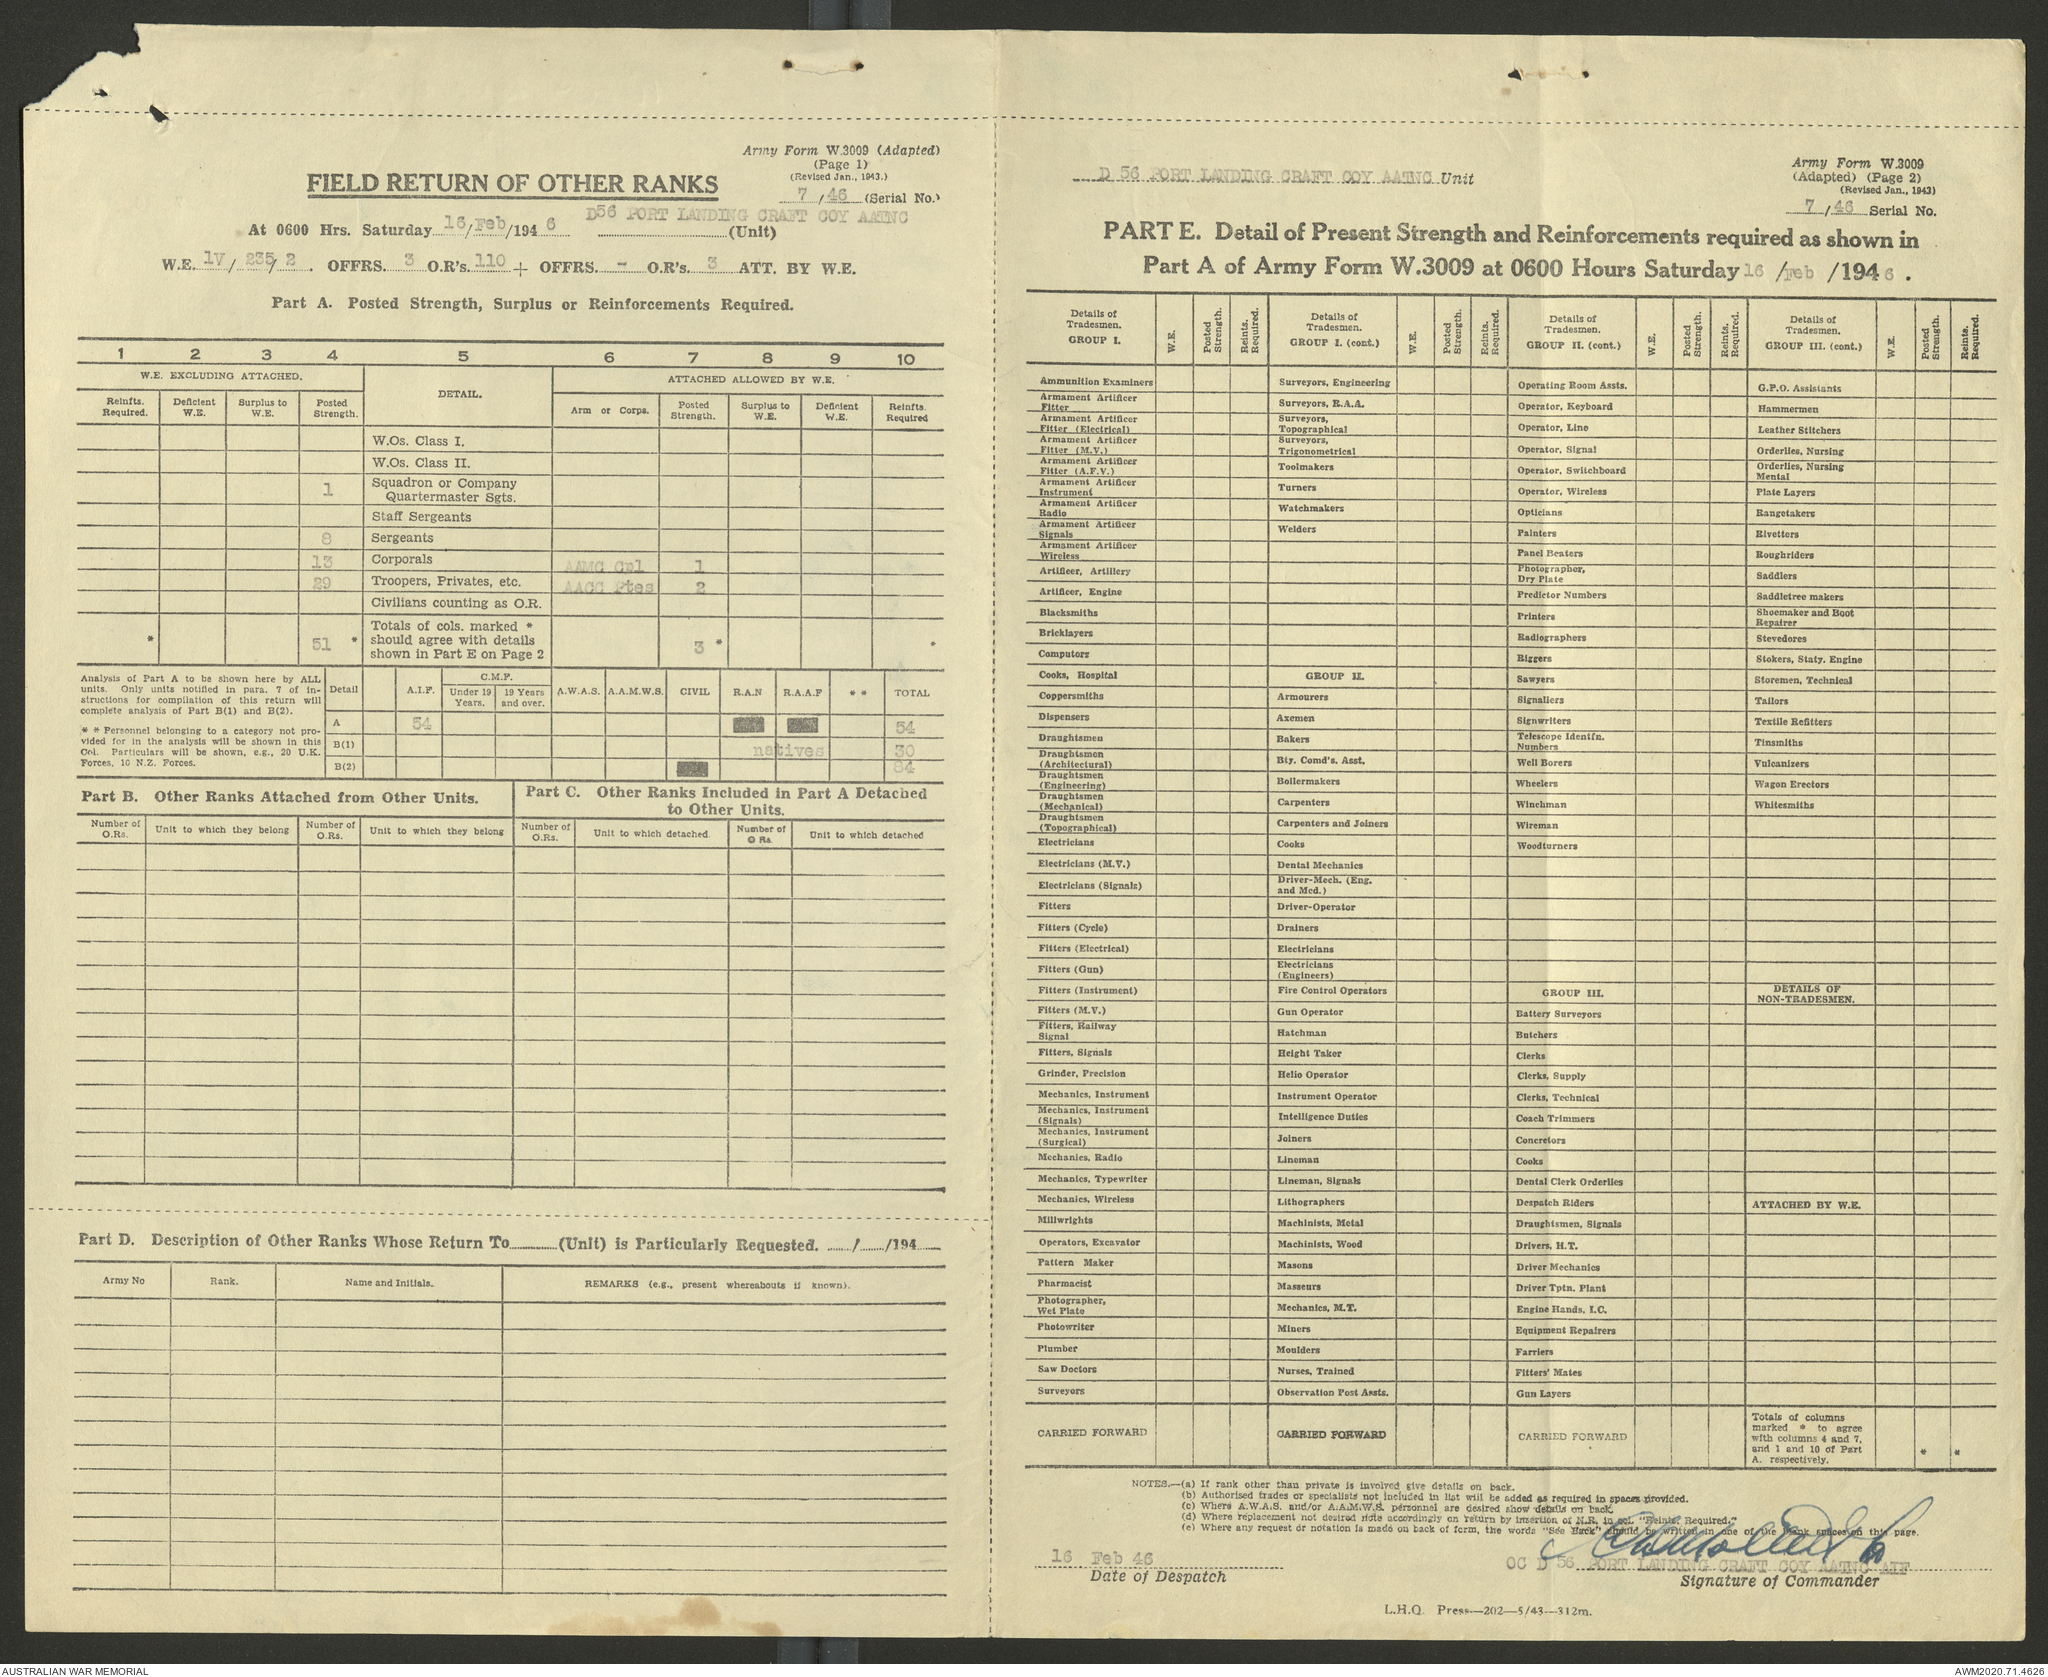 Army Form W.3009 (Adapted)
(Page 1)
(Revised Jan., 1943.)
FIELD RETURN OF OTHER RANKS
7 / 46 (Serial No.)
At 0600 Hrs. Saturday 16/Feb/194 6 D56 PORT LANDING CRAFT COY AATNC (Unit)
W.E. 1V/ 235/ 2 . OFFRS. 3 O.R's. 110 + OFFRS. - O.R's. 3 ATT. BY W.E.
Part A. Posted Strength, Surplus or Reinforcements Required.
1 2 3 4 5 6 7 8 9 10
W.E. EXCLUDING ATTACHED. DETAIL. ATTACHED ALLOWED BY W.E.
Reinfts. Required. Deficient W.E. Surplus to W.E. Posted Strength. Arm or Corps. Posted Strength. Surplus to W.E. Deficient W.E. Reinfts. Required
W.Os. Class I.
W.Os. Class II.
1 Squadron or Company Quartermaster Sgts.
Staff Sergeants
8 Sergeants
13 Corporals AAMC Cpl 1
29 Troopers, Privates, etc. AACC Ptes 2
Civilians counting as O.R.
* 51 * Totals of cols. marked * should agree with details shown in Part E on Page 2 3 * *
Analysis of Part A to be shown here by ALL
units. Only units notified in para. 7 of in-
structions for compilation of this return will
complete analysis of Part B(1) and B(2).
* * Personnel belonging to a category not pro-
vided for in the analysis will be shown in this
Col. Particulars will be shown, e.g., 20 U.K.
Forces, 10 N.Z. Forces.
Detail A.I.F. C.M.F. Under 19 Years. 19 Years and over. A.W.A.S. A.A.M.W.S. CIVIL R.A.N R.A.A.F * * TOTAL
A 54 54
B(1) natives 30
B(2) 84
Part B. Other Ranks Attached from Other Units.
Part C. Other Ranks Included in Part A Detached
to Other Units.
Number of O.Rs. Unit to which they belong Number of O.Rs. Unit to which they belong Number of O.Rs. Unit to which detached. Number of O Rs. Unit to which detached
Part D. Description of Other Ranks Whose Return To (Unit) is Particularly Requested. / /194
Army No Rank. Name and Initials. REMARKS (e.g., present whereabouts if known).
D 56 PORT LANDING CRAFT COY AATNC Unit
Army Form W.3009
(Adapted) (Page 2)
(Revised Jan., 1943)
7 / 46 Serial No.
PART E. Detail of Present Strength and Reinforcements required as shown in
Part A of Army Form W.3009 at 0600 Hours Saturday 16 /Feb /194 6 .
Details of Tradesmen. GROUP I. W.E. Posted Strength. Reints. Required.
Ammunition Examiners
Armament Artificer Fitter
Armament Artificer Fitter (Electrical)
Armament Artificer Fitter (M.V.)
Armament Artificer Fitter (A.F.V.)
Armament Artificer Instrument
Armament Artificer Radio
Armament Artificer Signals
Armament Artificer Wireless
Artificer, Artillery
Artificer, Engine
Blacksmiths
Bricklayers
Computors
Cooks, Hospital
Coppersmiths
Dispensers
Draughtsmen
Draughtsmen (Architectural)
Draughtsmen (Engineering)
Draughtsmen (Mechanical)
Draughtsmen (Topographical)
Electricians
Electricians (M.V.)
Electricians (Signals)
Fitters
Fitters (Cycle)
Fitters (Electrical)
Fitters (Gun)
Fitters (Instrument)
Fitters (M.V.)
Fitters, Railway Signal
Fitters, Signals
Grinder, Precision
Mechanics, Instrument
Mechanics, Instrument (Signals)
Mechanics, Instrument (Surgical)
Mechanics, Radio
Mechanics, Typewriter
Mechanics, Wireless
Millwrights
Operators, Excavator
Pattern Maker
Pharmacist
Photographer, Wet Plate
Photowriter
Plumber
Saw Doctors
Surveyors
CARRIED FORWARD
Details of Tradesmen. GROUP I. (cont.) W.E. Posted Strength. Reints. Required.
Surveyors, Engineering
Surveyors, R.A.A.
Surveyors, Topographical
Surveyors, Trigonometrical
Toolmakers
Turners
Watchmakers
Welders
GROUP II.
Armourers
Axemen
Bakers
Bty. Comd's. Asst.
Boilermakers
Carpenters
Carpenters and Joiners
Cooks
Dental Mechanics
Driver-Mech. (Eng. and Med.)
Driver-Operator
Drainers
Electricians
Electricians (Engineers)
Fire Control Operators
Gun Operator
Hatchman
Height Taker
Helio Operator
Instrument Operator
Intelligence Duties
Joiners
Lineman
Lineman, Signals
Lithographers
Machinists, Metal
Machinists, Wood
Masons
Masseurs
Mechanics, M.T.
Miners
Moulders
Nurses, Trained
Observation Post Assts.
CARRIED FORWARD
Details of Tradesmen. GROUP II. (cont.) W.E. Posted Strength. Reints. Required.
Operating Room Assts.
Operator, Keyboard
Operator, Line
Operator, Signal
Operator, Switchboard
Operator, Wireless
Opticians
Painters
Panel Beaters
Photographer, Dry Plate
Predictor Numbers
Printers
Radiographers
Riggers
Sawyers
Signallers
Signwriters
Telescope Identfn. Numbers
Well Borers
Wheelers
Winchman
Wireman
Woodturners
GROUP III.
Battery Surveyors
Butchers
Clerks
Clerks, Supply
Clerks, Technical
Coach Trimmers
Concretors
Cooks
Dental Clerk Orderlies
Despatch Riders
Draughtsmen, Signals
Drivers, H.T.
Driver Mechanics
Driver Tptn. Plant
Engine Hands, I.C.
Equipment Repairers
Farriers
Fitters' Mates
Gun Layers
CARRIED FORWARD
Details of Tradesmen. GROUP III. (cont.) W.E. Posted Strength. Reints. Required.
G.P.O. Assistants
Hammermen
Leather Stitchers
Orderlies, Nursing
Orderlies, Nursing Mental
Plate Layers
Rangetakers
Rivetters
Roughriders
Saddlers
Saddletree makers
Shoemaker and Boot Repairer
Stevedores
Stokers, Staty. Engine
Storemen, Technical
Tailors
Textile Refitters
Tinsmiths
Vulcanizers
Wagon Erectors
Whitesmiths
DETAILS OF NON-TRADESMEN.
ATTACHED BY W.E.
Totals of columns
marked * to agree
with columns 4 and 7,
and 1 and 10 of Part
A. respectively.
* *
NOTES.—(a) If rank other than private is involved give details on back.
(b) Authorised trades or specialists not included in list will be added as required in spaces provided.
(c) Where A.W.A.S. and/or A.A.M.W.S. personnel are desired show details on back.
(d) Where replacement not desired note accordingly on return by insertion of N.R. in col. "Reints. Required."
(e) Where any request or notation is made on back of form, the words "See Back" should be written in one of the blank spaces on this page.
16 Feb 46
Date of Despatch
OC D 56 PORT LANDING CRAFT COY AATNC AIF
Signature of Commander
L.H.Q. Press—202—5/43—312m.
AUSTRALIAN WAR MEMORIAL
AWM2020.71.4626